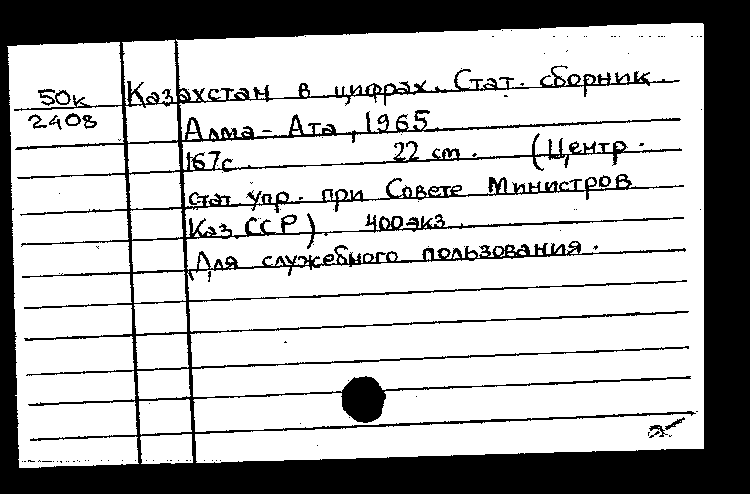 50к Казахстан в цифрах. Стат. сборник.
2408 Алма-Ата, 1965
167с. 22 cm. (Центр.
стат упр. при Совете Министров
Каз. ССР). 400экз.
Для служебного пользования.